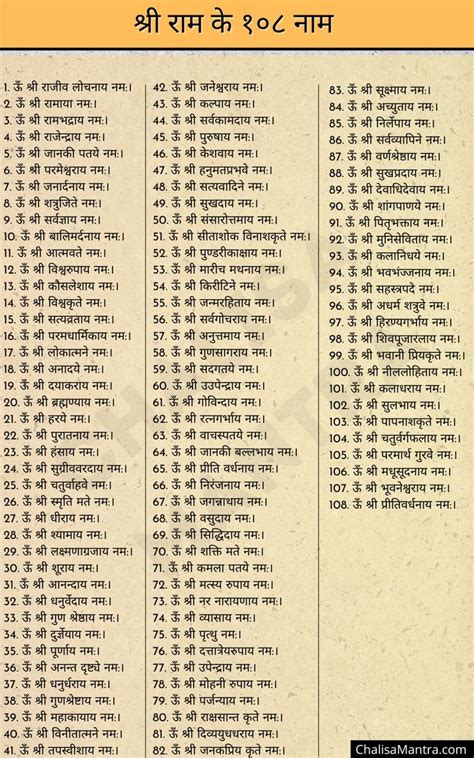 श्री राम के १०८ नाम
1. ऊँ श्री राजीव लोचनाय नम:।
2. ऊँ श्री रामाया नम:।
3. ऊँ श्री रामभद्राय नम:।
4. ऊँ श्री राजेन्द्राय नम:।
5. ऊँ श्री जानकी पतये नम:।
6. ऊँ श्री परमेश्वराय नम:।
7. ऊँ श्री जनार्दनाय नम:।
8. ऊँ श्री शत्रुजिते नम:।
9. ऊँ श्री सर्वज्ञाय नम:।
10. ऊँ श्री बालिमर्दनाय नम:।
11. ऊँ श्री आत्मवते नम:।
12. ऊँ श्री विश्वरुपाय नम:।
13. ऊँ श्री कौसलेशाय नम:।
14. ऊँ श्री विश्वकृते नम:।
15. ऊँ श्री सत्यव्रताय नम:।
16. ऊँ श्री परमधार्मिकाय नम:।
17. ऊँ श्री लोकात्मने नम:।
18. ऊँ श्री अनादये नम:।
19. ऊँ श्री दयाकराय नम:।
20. ऊँ श्री ब्रह्मण्याय नम:।
21. ऊँ श्री हरये नम:।
22. ऊँ श्री पुरातनाय नम:।
23. ऊँ श्री हंसाय नम:।
24. ऊँ श्री सुग्रीववरदाय नम:।
25. ऊँ श्री चतुर्वाहवे नम:।
26. ऊँ श्री स्मृति मते नम:।
27. ऊँ श्री धीराय नम:।
28. ऊँ श्री श्यामाय नम:।
29. ऊँ श्री लक्ष्मणाग्रजाय नम:।
30. ऊँ श्री शूराय नम:।
31. ऊँ श्री आनन्दाय नम:।
32. ऊँ श्री धनुर्वेदाय नम:।
33. ऊँ श्री गुण श्रेष्ठाय नम:।
34. ऊँ श्री दुर्ज्ञेयाय नम:।
35. ऊँ श्री पूर्णाय नम:।
36. ऊँ श्री अनन्त दृष्टये नम:।
37. ऊँ श्री धनुर्धराय नम:।
38. ऊँ श्री गुणश्रेष्टाय नम:।
39. ऊँ श्री महाकायाय नम:।
40. ऊँ श्री विनीतात्मने नम:।
41. ऊँ श्री तपस्वीशाय नम:।
42. ऊँ श्री जनेश्वराय नम:।
43. ऊँ श्री कल्पाय नम:।
44. ऊँ श्री सर्वकामदाय नम:।
45. ऊँ श्री पुरुषाय नम:।
46. ऊँ श्री केशवाय नम:।
47. ऊँ श्री हनुमतप्रभवे नम:।
48. ऊँ श्री सत्यवादिने नम:।
49. ऊँ श्री सुखदाय नम:।
50. ऊँ श्री संसारोत्तमाय नम:।
51. ऊँ श्री सीताशोक विनाशकृते नम:।
52. ऊँ श्री पुण्डरीकाक्षाय नम:।
53. ऊँ श्री मारीच मथनाय नम:।
54. ऊँ श्री किरीटिने नम:।
55. ऊँ श्री जन्मरहिताय नम:।
56. ऊँ श्री सर्वगोचराय नम:।
57. ऊँ श्री अनुत्तमाय नम:।
58. ऊँ श्री गुणसागराय नम:।
59. ऊँ श्री सदगतये नम:।
60. ऊँ श्री उउपेन्द्राय नम:।
61. ऊँ श्री गोविन्दाय नम:।
62. ऊँ श्री रत्नगर्भाय नम:।
63. ऊँ श्री वाचस्पतये नम:।
64. ऊँ श्री जानकी बल्लभाय नम:।
65. ऊँ श्री प्रीति वर्धनाय नम:।
66. ऊँ श्री निरंजनाय नम:।
67. ऊँ श्री जगन्नाथाय नम:।
68. ऊँ श्री वसुदाय नम:।
69. ऊँ श्री सिद्धिदाय नम:।
70. ऊँ श्री शक्ति मते नम:।
71. ऊँ श्री कमला पतये नम:।
72. ऊँ श्री मत्स्य रुपाय नम:।
73. ऊँ श्री नर नारायणाय नम:।
74. ऊँ श्री व्यासाय नम:।
75. ऊँ श्री पृत्थु नम:।
76. ऊँ श्री दत्तात्रेयरुपाय नम:।
77. ऊँ श्री उपेन्द्राय नम:।
78. ऊँ श्री मोहनी रुपाय नम:।
79. ऊँ श्री पर्जन्याय नम:।
80. ऊँ श्री राक्षसान्त कृते नम:।
81. ऊँ श्री दिव्ययुधधराय नम:।
82. ऊँ श्री जनकप्रिय कृते नम:।
83. ऊँ श्री सूक्ष्माय नम:।
84. ऊँ श्री अच्युताय नम:।
85. ऊँ श्री निर्लेपाय नम:।
86. ऊँ श्री सर्वव्यापिने नम:।
87. ऊँ श्री वर्णश्रेष्ठाय नम:।
88. ऊँ श्री सुखप्रदाय नम:।
89. ऊँ श्री देवाधिदेवाय नम:।
90. ऊँ श्री शांगपाणये नम:।
91. ऊँ श्री पितृभक्ताय नम:।
92. ऊँ श्री मुनिसेविताय नम:।
93. ऊँ श्री कलानिधये नम:।
94. ऊँ श्री भवभंज्जनाय नम:।
95. ऊँ श्री सहस्त्रपदे नम:।
96. ऊँ श्री अधर्म शत्रुवे नम:।
97. ऊँ श्री हिरण्यगर्भाय नम:।
98. ऊँ श्री शिवपूजारंलाय नम:।
99. ऊँ श्री भवानी प्रियकृते नम:।
100. ऊँ श्री नीललोहिताय नम:।
101. ऊँ श्री कलाधराय नम:।
102. ऊँ श्री सुलभाय नम:।
103. ऊँ श्री पापनाशकृते नम:।
104. ऊँ श्री चतुर्वर्गफलाय नम:।
105. ऊँ श्री परमार्थ गुरवे नम:।
106. ऊँ श्री मधूसूदनाय नम:।
107. ऊँ श्री भूवनेश्वराय नम:।
108. ऊँ श्री प्रीतिवर्धनाय नम:।
ChalisaMantra.com